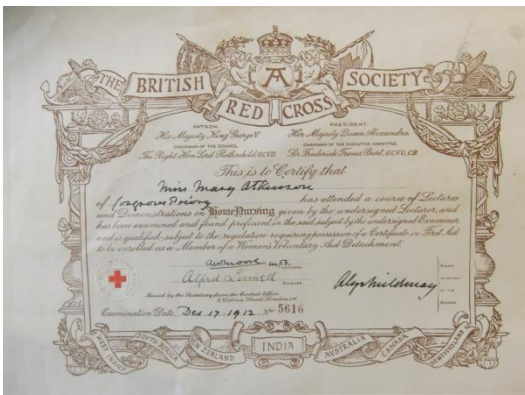 THE BRITISH RED CROSS SOCIETY
PATRON. PRESIDENT.
His Majesty King George V. Her Majesty Queen Alexandra
CHAIRMAN OF THE COUNCIL CHAIRMAN OF THE EXECUTIVE COMMITTEE.
The Right Hon. Lord Rothschild G.C.V.O. Sir Frederick Treves Bart, G.C.V.O, C.B.
This is to Certify that
Miss Mary Atkinson
of Cosgrove Priory has attended a course of Lectures
and Demonstrations on Home Nursing given by the undersigned Lecturer, and
has been examined and found proficient in the said subject by the undersigned Examiner,
and is qualified, subject to the regulation requiring possession of a Certificate in First Aid
to be enrolled as a Member of a Women's Voluntary Aid Detachment.
LECTURER
Alfred EXAMINER
Issued by the Secretary from the Central Office,
Victoria Street, London, S.W.
Examination Date. Dec 17. 1912 No 5616
WEST INDIES SOUTH AFRICA NEW ZEALAND INDIA AUSTRALIA CANADA NEWFOUNDLAND